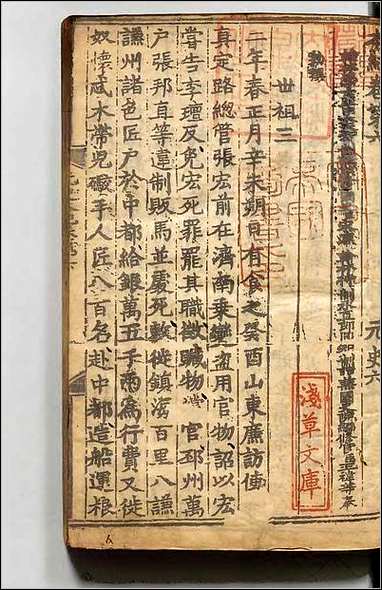 本紀卷第六 元史六
敕修
世祖三
二年春正月辛未朔日有食之癸酉山東廉訪使
真定路總管張宏前在濟南乘變盜用官物詔以宏
嘗告李璮反免宏死罪罷其職徵贓物償 官邳州萬
戶張邦直等違制販馬並處死敕徙鎮海百里八謙
謙州諸色匠戶於中都給銀萬五千兩為行費又徙
奴懷忒木帶兒礮手人匠八百名赴中都造船運粮
淺草文庫